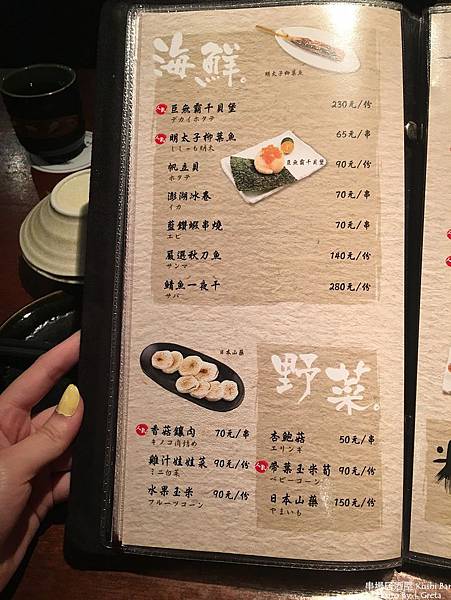 海鮮。
明太子柳葉魚
人氣 豆魚霸干貝堡 230元/份
デカイホタテ
人氣 明太子柳葉魚 65元/串
ししゃも明太
豆魚霸干貝堡
帆立貝 90元/份
ホタテ
澎湖冰卷 70元/串
イカ
藍鑽蝦串燒 70元/串
エビ
嚴選秋刀魚 140元/份
サンマ
鯖魚一夜干 280元/份
サバ
日本山藥
野菜。
人氣 香菇鑲肉 70元/串
キノコ肉詰め
雞汁娃娃菜 90元/份
ミニ白菜
水果玉米 90元/份
フルーツコーン
杏鮑菇 50元/串
エリンギ
人氣 帶葉玉米筍 90元/份
ベビーコーン
日本山藥 150元/份
やまいも
串場居酒屋 Kushi Bar
Photo by I. Greta